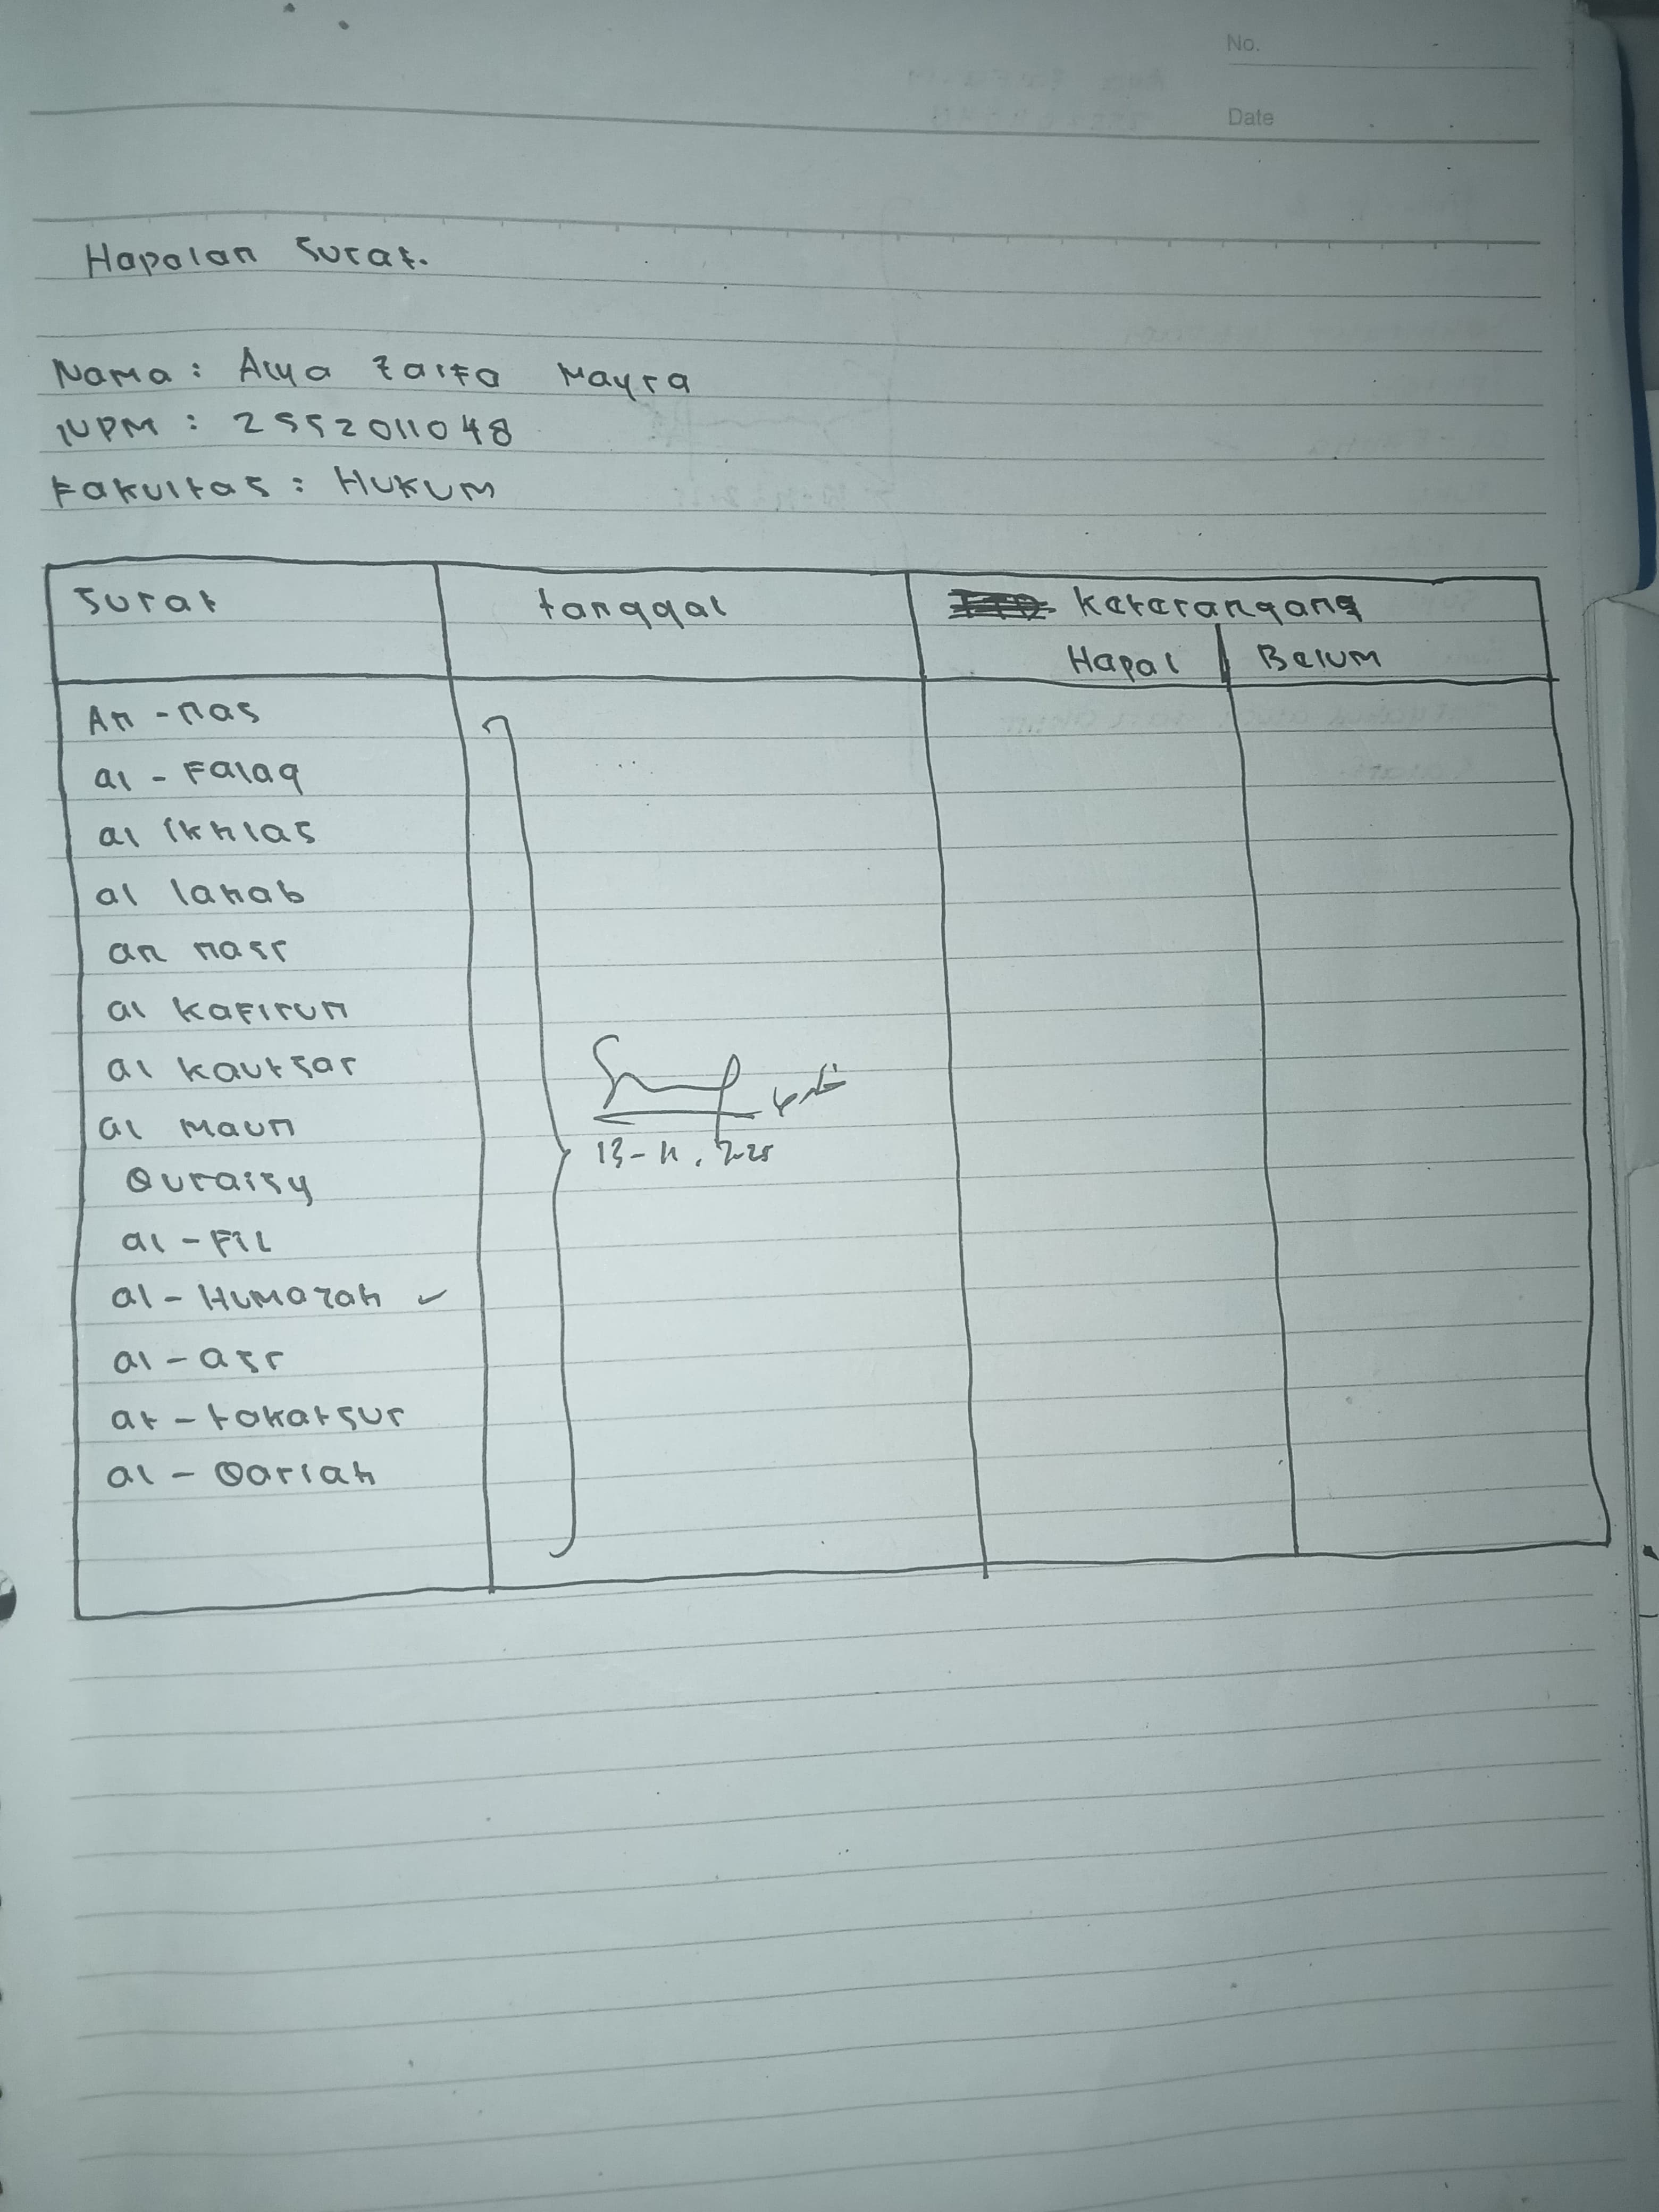 No.
Date
Hapalan Surat.
Nama : Alya Zaifa Mayra
NPM : 2552011048
Fakultas : Hukum
Surat tanggal Keterangang
Hapal Belum
An - nas
al - Falaq
al Ikhlas
al lahab
an nasr
al kafirun
al kautsar
al Maun
Quraisy
al - FiL
al - Humazah ✓
al - asr
at - takatsur
al - Qariah
13 - 11 . 2025